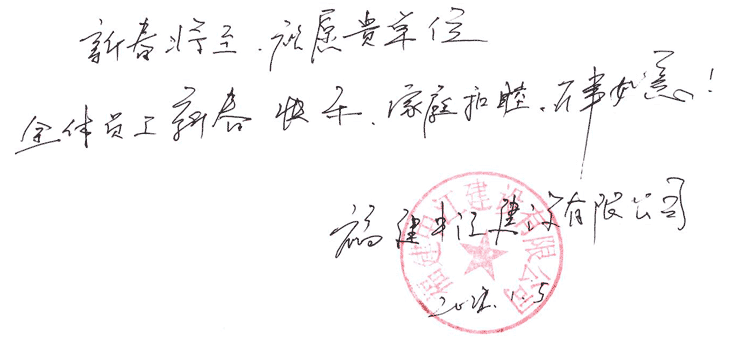 新春将至、祝愿贵单位
全体员工新春快乐、家庭和睦、万事如意!
福建申江建设有限公司
福建申江建设有限公司